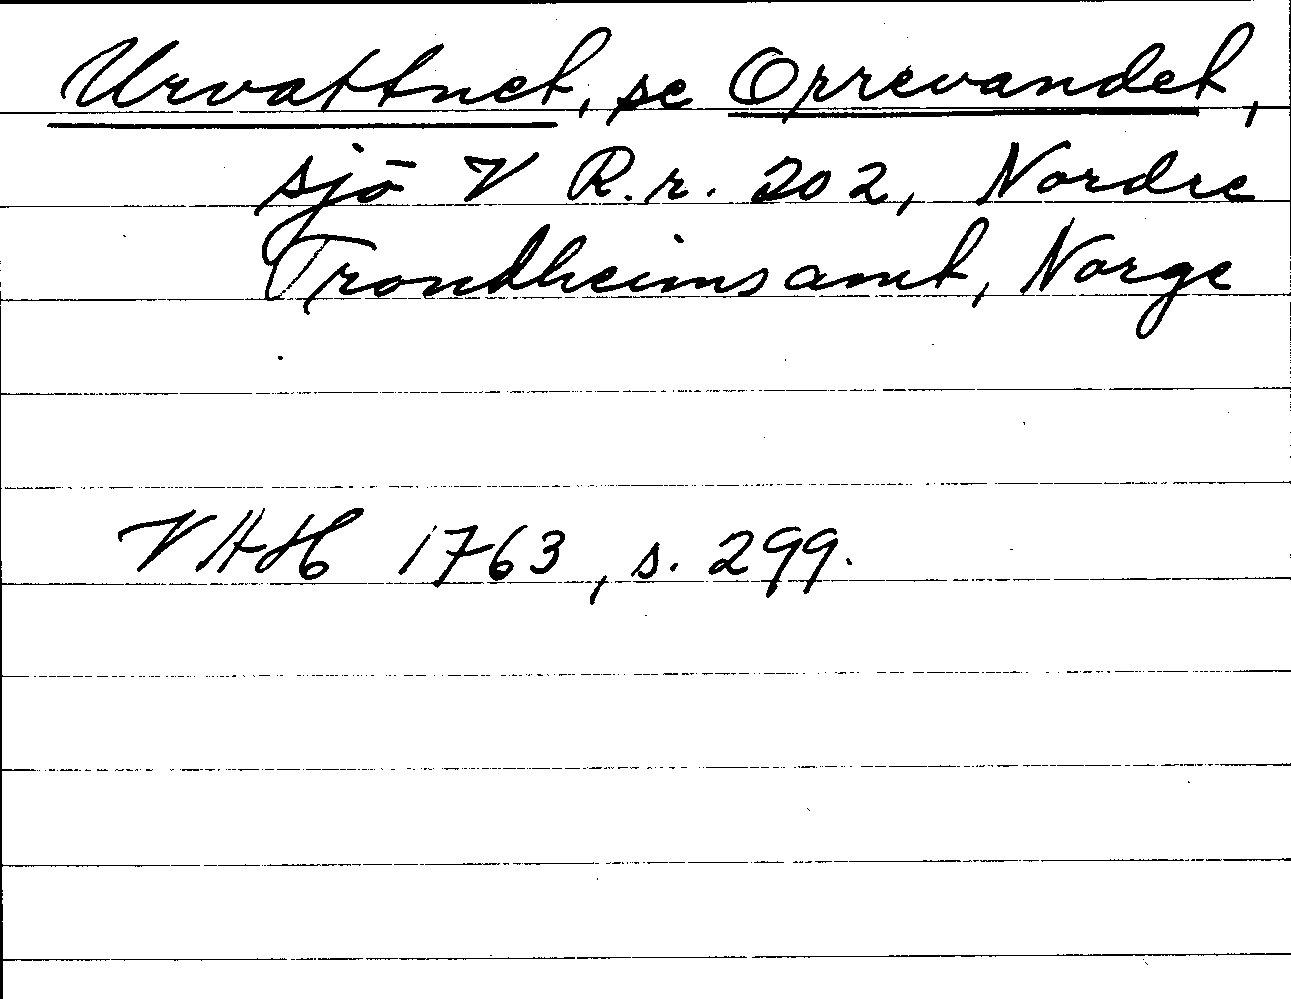 Urvattnet, se Orrevandet,
sjö V R.r. 202, Nordre
Trondheimsamt, Norge
VHH 1763, s. 299.